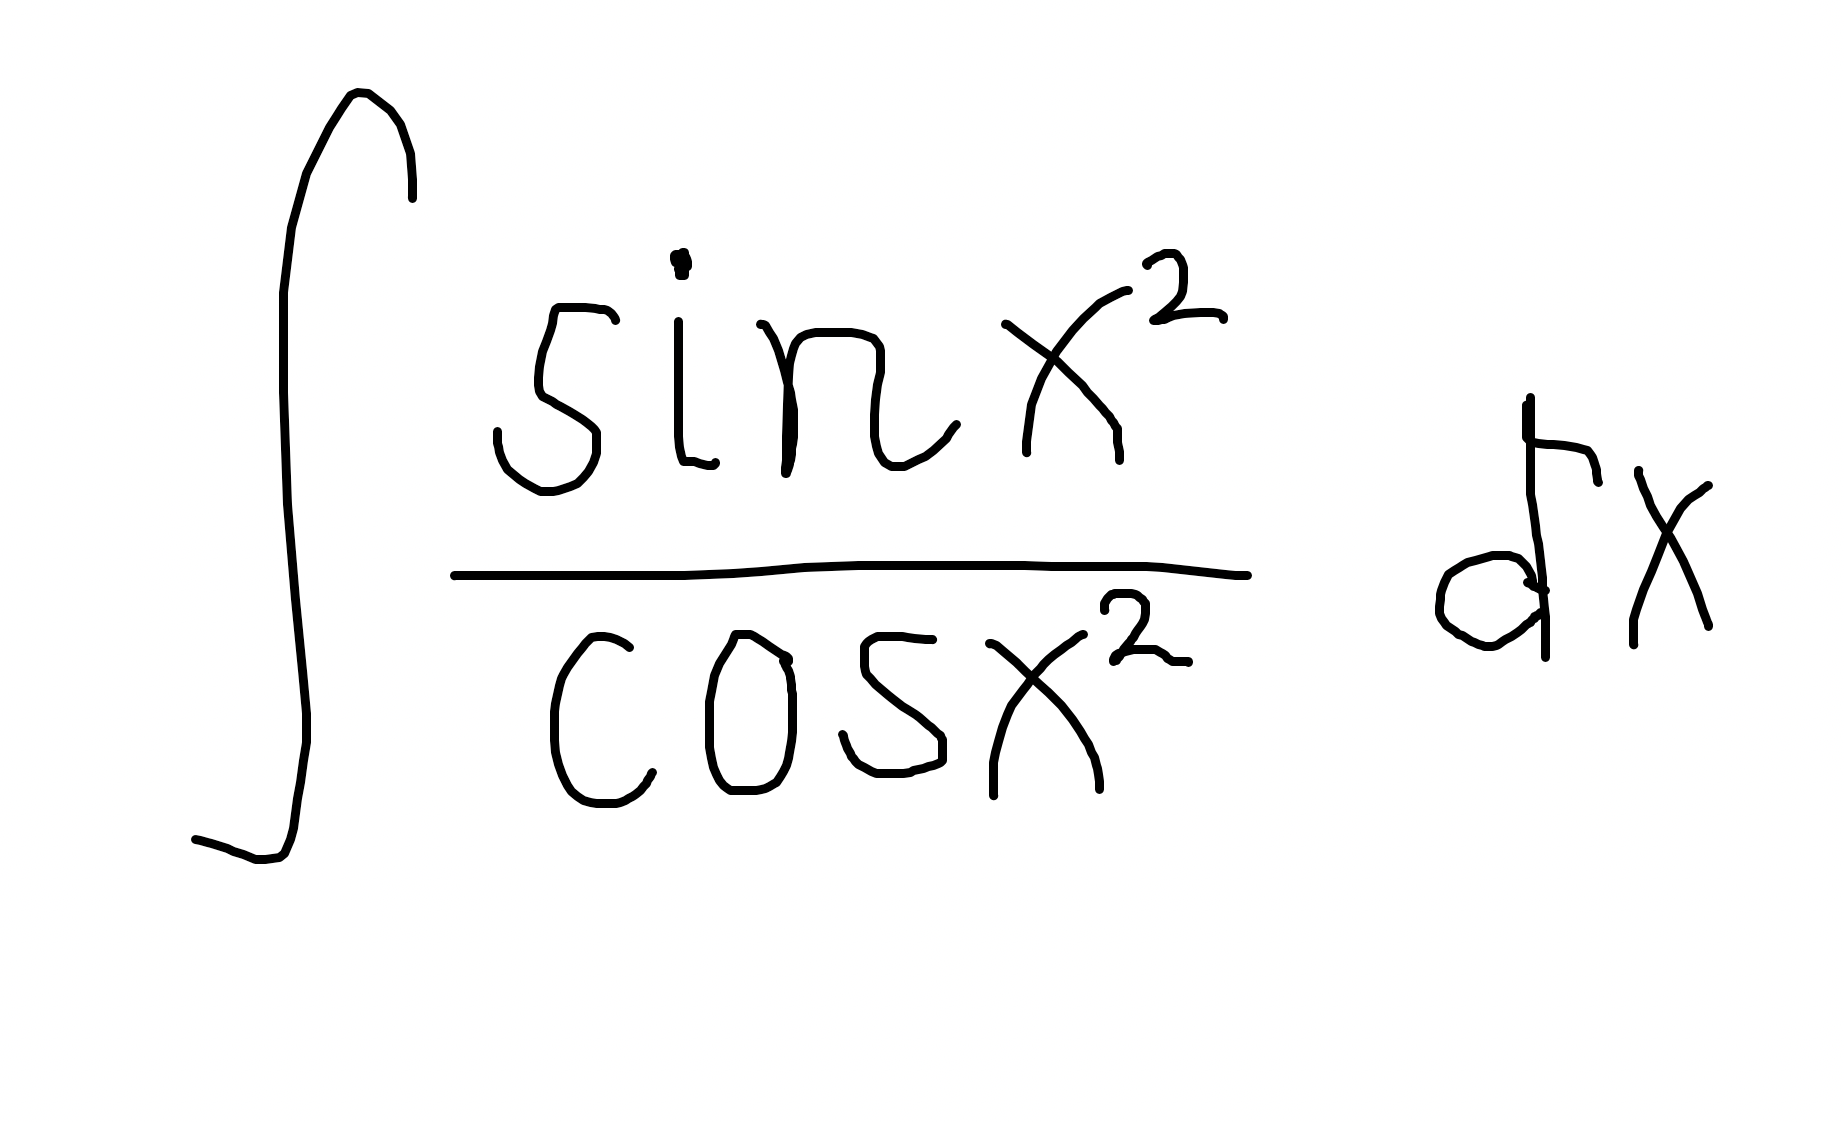 ∫ sin x² / cos x² dx